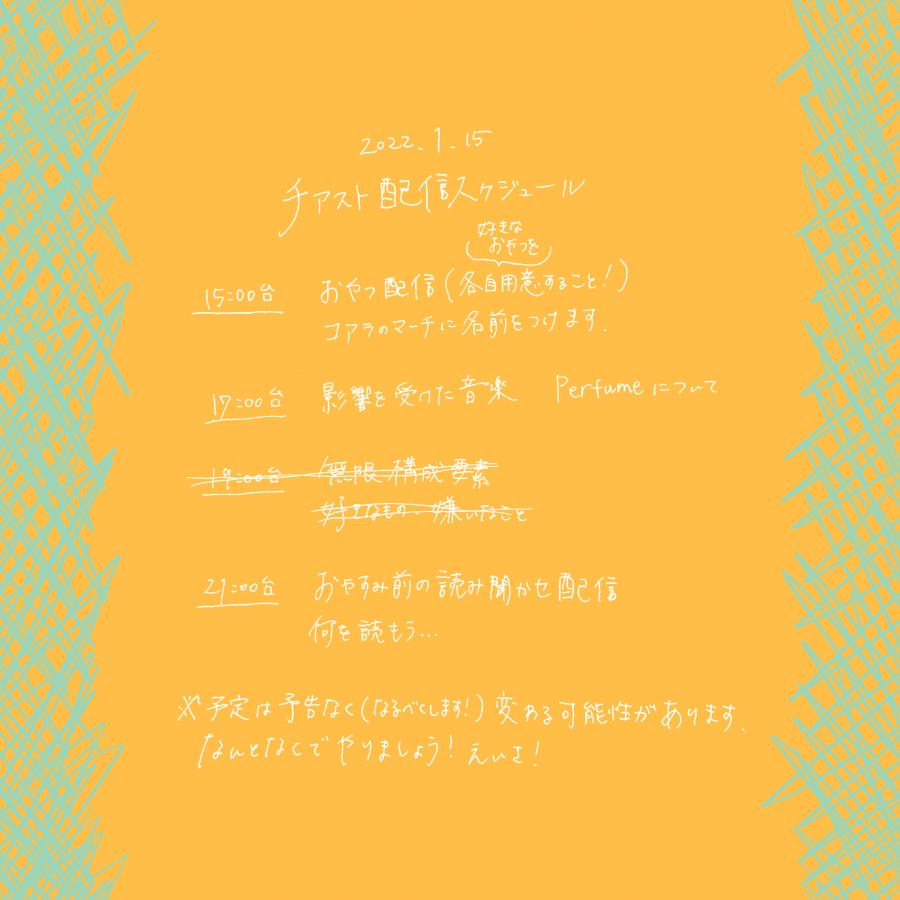 2022.1.15
チアスト配信スケジュール
好きな
おやつを
15:00台 おやつ配信(各自用意すること!)
コアラのマーチに名前をつけます.
17:00台 影響を受けた音楽 Perfumeについて
19:00台 無限構成要素
好きなもの・嫌いなこと
21:00台 おやすみ前の読み聞かせ配信
何を読もう...
※予定は予告なく(なるべくします!)変わる可能性があります.
なんとなくでやりましょう! えいさ!